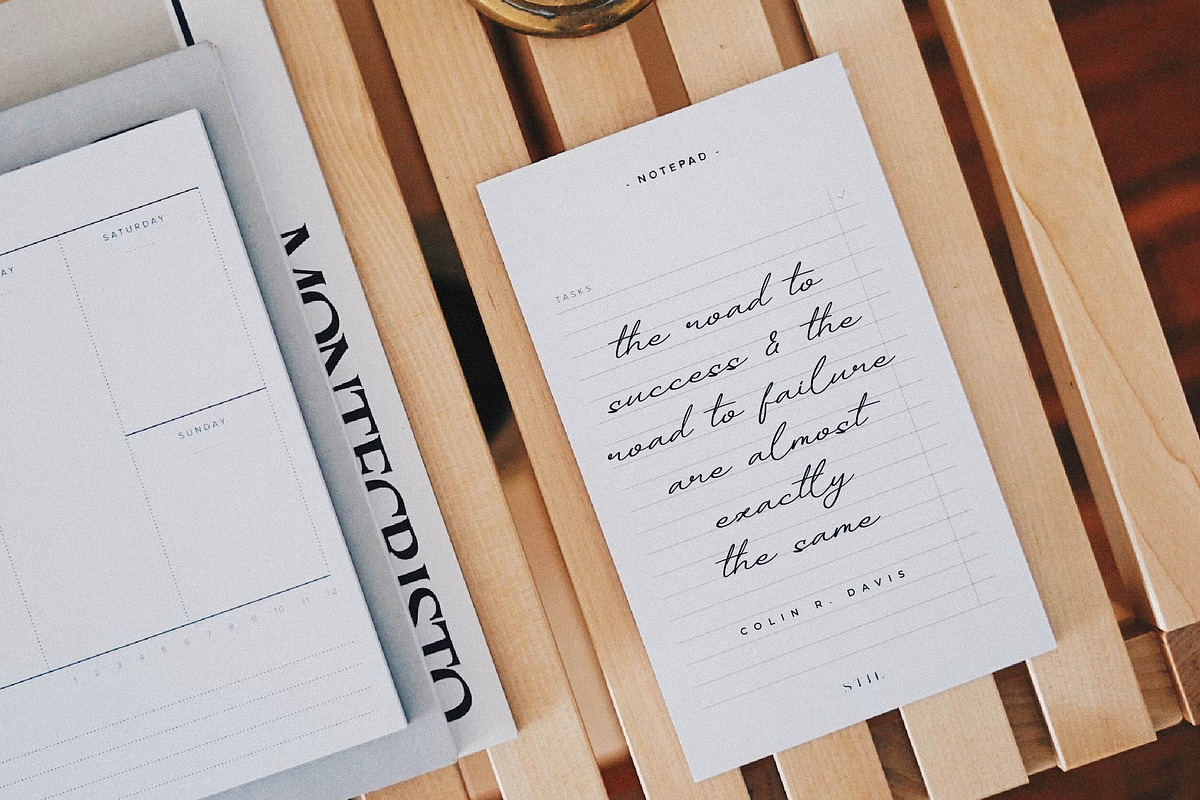 SATURDAY
SUNDAY
1 2 3 4 5 6 7 8 9 10 11 12
- NOTEPAD -
TASKS
the road to
success & the
road to failure
are almost
exactly
the same
COLIN R. DAVIS
STIL